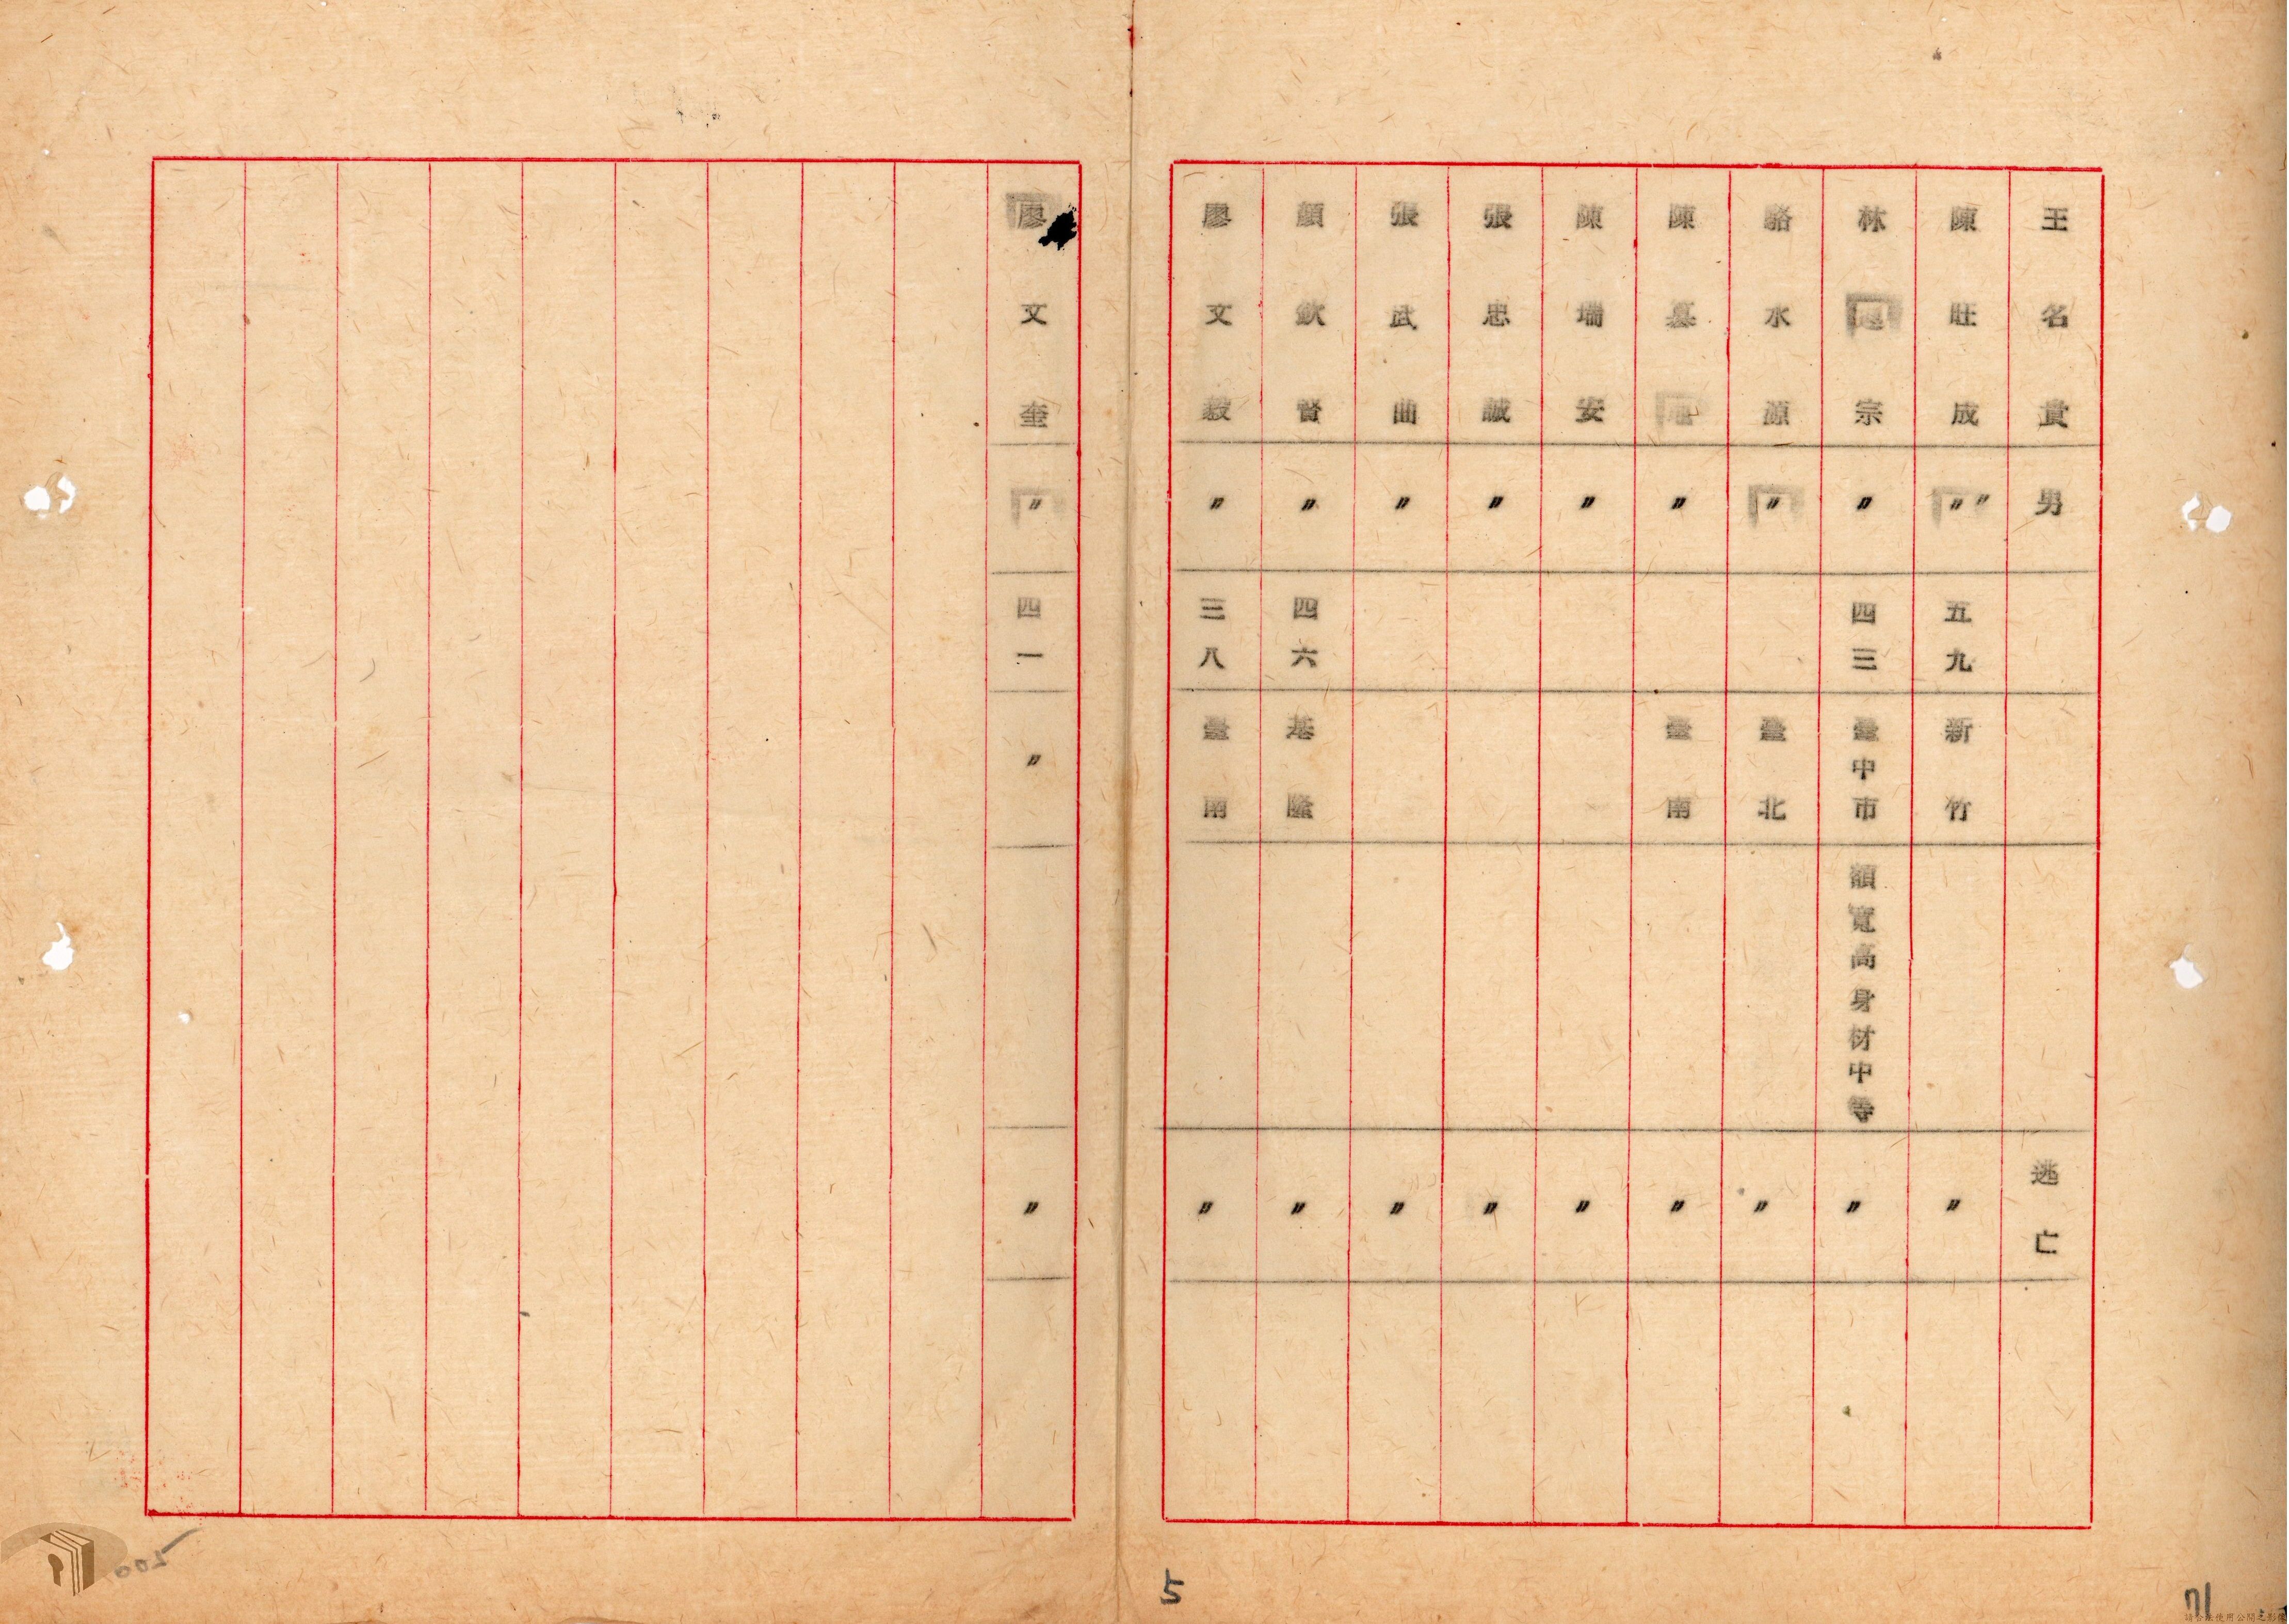 王名貴 男 逃亡
陳旺成 〃〃 五九 新竹 〃
林連宗 〃 四三 臺中市 額寬高身材中等 〃
駱水源 〃 臺北 〃
陳 〃 臺南 〃
陳瑞安 〃 〃
張忠誠 〃 〃
張武曲 〃 〃
顏欽賢 〃 四六 基隆 〃
廖文毅 〃 三八 臺南 〃
廖文奎 〃 四一 〃 〃
5
71